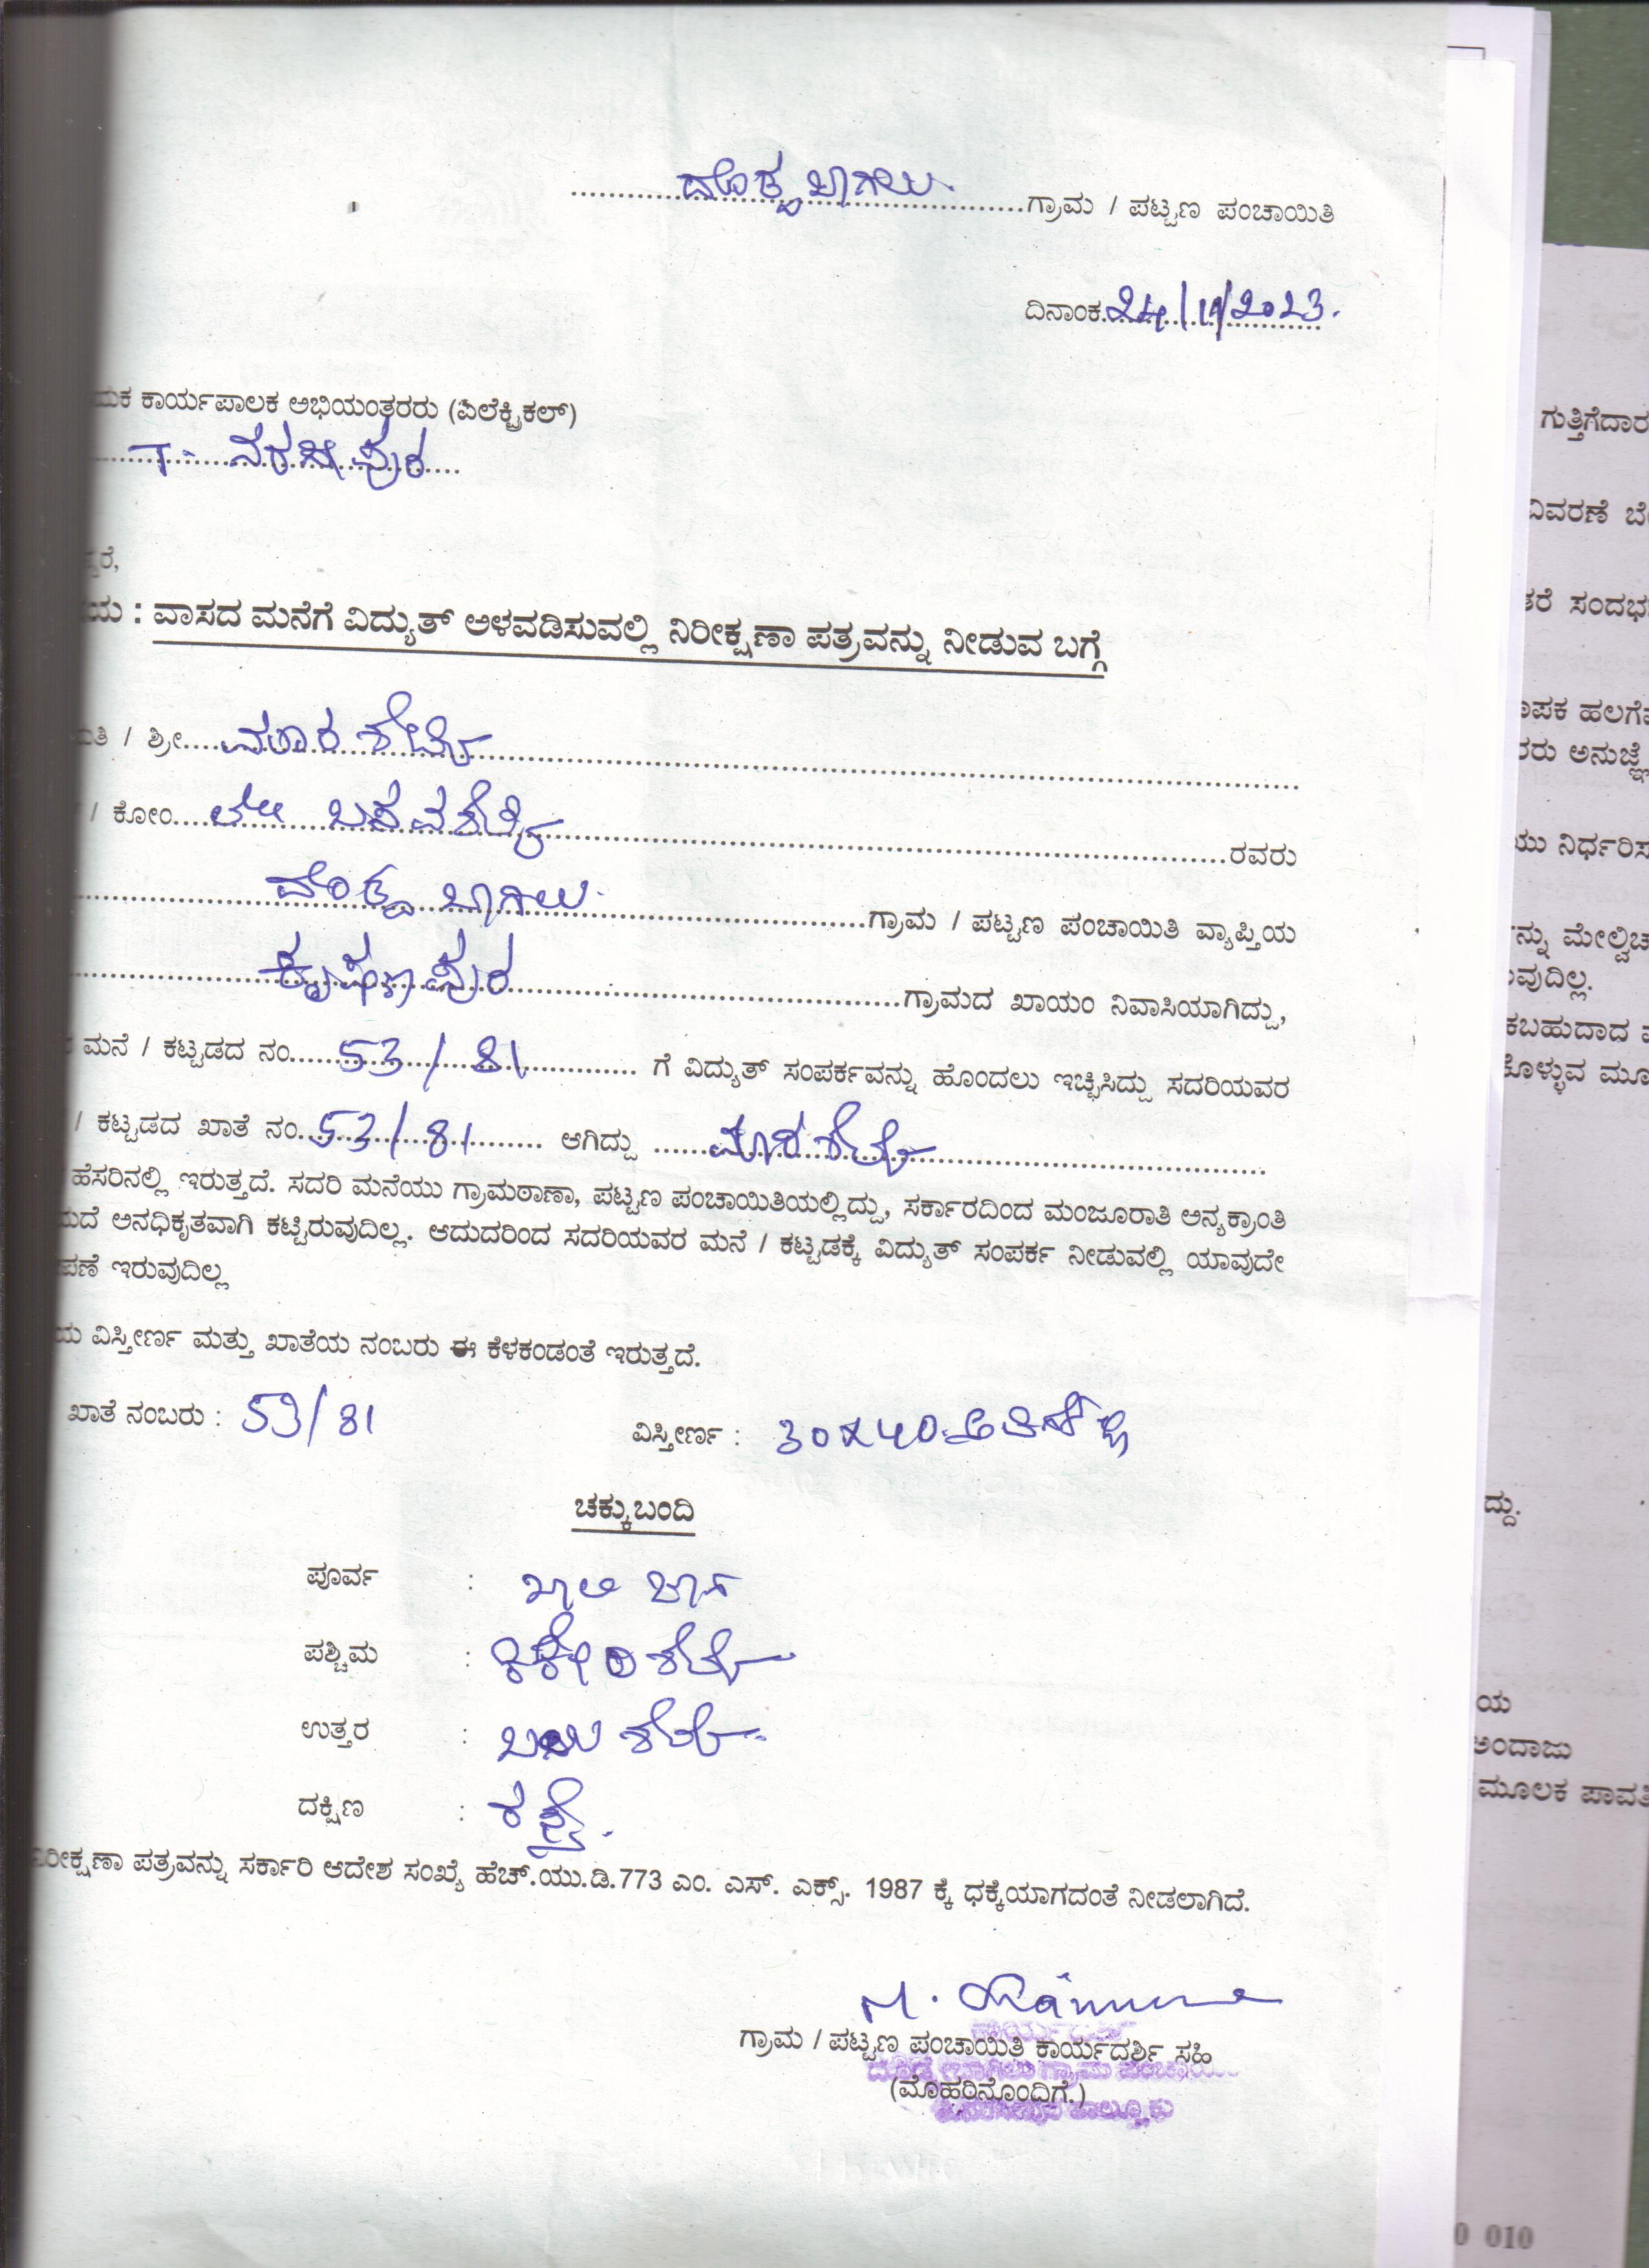 ದೊಡ್ಡಬಾಗಿಲು ಗ್ರಾಮ / ಪಟ್ಟಣ ಪಂಚಾಯಿತಿ
ದಿನಾಂಕ 24/11/2023.
ಕಾರ್ಯಪಾಲಕ ಅಭಿಯಂತರರು (ಏಲೆಕ್ಟ್ರಿಕಲ್)
T. ನರಸೀಪುರ
: ವಾಸದ ಮನೆಗೆ ವಿದ್ಯುತ್ ಅಳವಡಿಸುವಲ್ಲಿ ನಿರೀಕ್ಷಣಾ ಪತ್ರವನ್ನು ನೀಡುವ ಬಗ್ಗೆ
/ ಶ್ರೀ ಮಾರಶೆಟ್ಟಿ
/ ಕೋಂ ಲೇ ಬಸವಶೆಟ್ಟಿ ರವರು
ದೊಡ್ಡಬಾಗಿಲು ಗ್ರಾಮ / ಪಟ್ಟಣ ಪಂಚಾಯಿತಿ ವ್ಯಾಪ್ತಿಯ
ಕೃಷ್ಣಾಪುರ ಗ್ರಾಮದ ಖಾಯಂ ನಿವಾಸಿಯಾಗಿದ್ದು,
ಮನೆ / ಕಟ್ಟಡದ ನಂ. 53/81 ಗೆ ವಿದ್ಯುತ್ ಸಂಪರ್ಕವನ್ನು ಹೊಂದಲು ಇಚ್ಛಿಸಿದ್ದು ಸದರಿಯವರ
/ ಕಟ್ಟಡದ ಖಾತೆ ನಂ. 53/81 ಆಗಿದ್ದು ಮಾರಶೆಟ್ಟಿ
ಹೆಸರಿನಲ್ಲಿ ಇರುತ್ತದೆ. ಸದರಿ ಮನೆಯು ಗ್ರಾಮಠಾಣಾ, ಪಟ್ಟಣ ಪಂಚಾಯಿತಿಯಲ್ಲಿದ್ದು, ಸರ್ಕಾರದಿಂದ ಮಂಜೂರಾತಿ ಅನ್ಯಕ್ರಾಂತಿ
ಅನಧಿಕೃತವಾಗಿ ಕಟ್ಟಿರುವುದಿಲ್ಲ. ಆದುದರಿಂದ ಸದರಿಯವರ ಮನೆ / ಕಟ್ಟಡಕ್ಕೆ ವಿದ್ಯುತ್ ಸಂಪರ್ಕ ನೀಡುವಲ್ಲಿ ಯಾವುದೇ
ಇರುವುದಿಲ್ಲ
ವಿಸ್ತೀರ್ಣ ಮತ್ತು ಖಾತೆಯ ನಂಬರು ಈ ಕೆಳಕಂಡಂತೆ ಇರುತ್ತದೆ.
ಖಾತೆ ನಂಬರು : 53/81 ವಿಸ್ತೀರ್ಣ : 30x40
ಚಕ್ಕುಬಂದಿ
ಪೂರ್ವ : ಖಾಲಿ ಜಾಗ
ಪಶ್ಚಿಮ : ಶೆಟ್ಟಿ
ಉತ್ತರ : ಶೆಟ್ಟಿ
ದಕ್ಷಿಣ : ರಸ್ತೆ.
ನಿರೀಕ್ಷಣಾ ಪತ್ರವನ್ನು ಸರ್ಕಾರಿ ಆದೇಶ ಸಂಖ್ಯೆ ಹೆಚ್.ಯು.ಡಿ.773 ಎಂ. ಎಸ್. ಎಕ್ಸ್. 1987 ಕ್ಕೆ ಧಕ್ಕೆಯಾಗದಂತೆ ನೀಡಲಾಗಿದೆ.
ಗ್ರಾಮ / ಪಟ್ಟಣ ಪಂಚಾಯಿತಿ ಕಾರ್ಯದರ್ಶಿ ಸಹಿ
(ಮೊಹರಿನೊಂದಿಗೆ.)
ದೊಡ್ಡಬಾಗಿಲು ಗ್ರಾಮ ಪಂಚಾಯಿ
ತಾಲ್ಲೂಕು
ಗುತ್ತಿಗೆದಾರ
ವಿವರಣೆ
ಸಂದರ್ಭ
ಅನುಜ್ಞೆ
ಅಂದಾಜು
ಮೂಲಕ
010